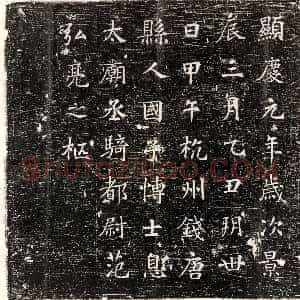 顯慶元年歲次景
辰三月乙丑朔卅
日甲午杭州錢唐
縣人國子愽士息
太廟丞騎都尉范
弘亮之柩